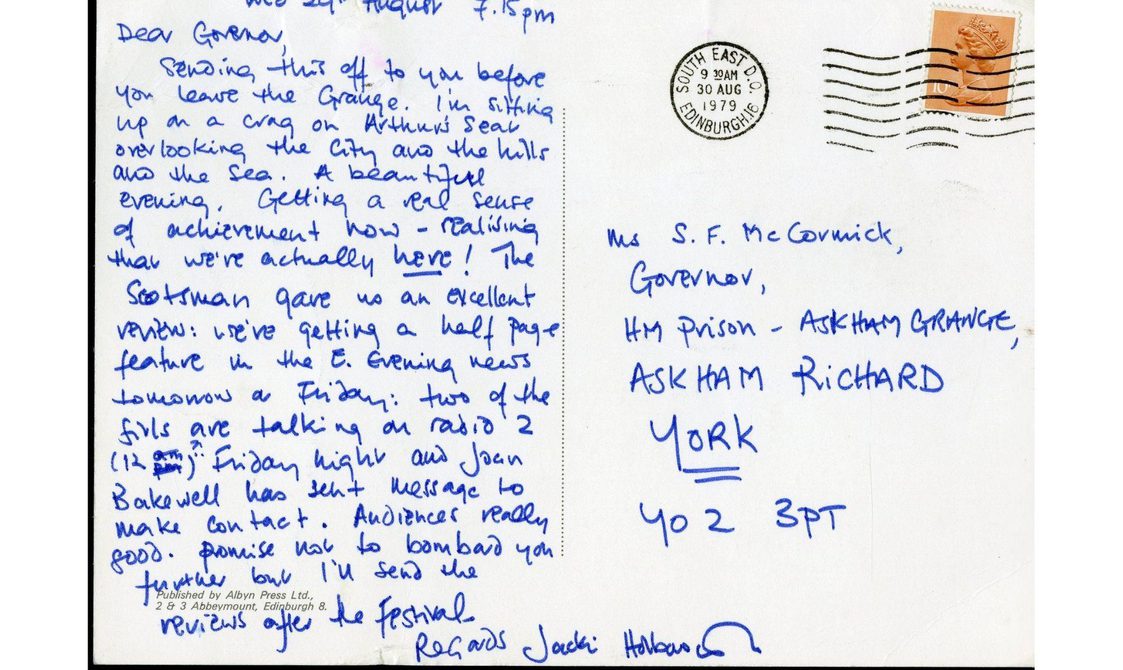 Wed 29th August 7.15pm
Dear Governor,
Sending this off to you before
you leave the Grange. I'm sitting
up on a crag on Arthur's Seat
overlooking the City and the hills
and the sea. A beautiful
evening. Getting a real sense
of achievement now - realising
that we're actually here! The
Scotsman gave us an excellent
review: we're getting a half page
feature in the E. Evening news
tomorrow or Friday: two of the
girls are talking on radio 2
(12 am) Friday night and Joan
Bakewell has sent message to
make contact. Audiences really
good. promise not to bombard you
further but I'll send the
reviews after the Festival.
Regards Jacki
Published by Albyn Press Ltd.,
2 & 3 Abbeymount, Edinburgh 8.
SOUTH EAST D.O.
9 30AM
30 AUG
1979
EDINBURGH.16
10
Ms S. F. McCormick,
Governor,
HM Prison - ASKHAM GRANGE,
ASKHAM RICHARD
YORK
YO2 3PT